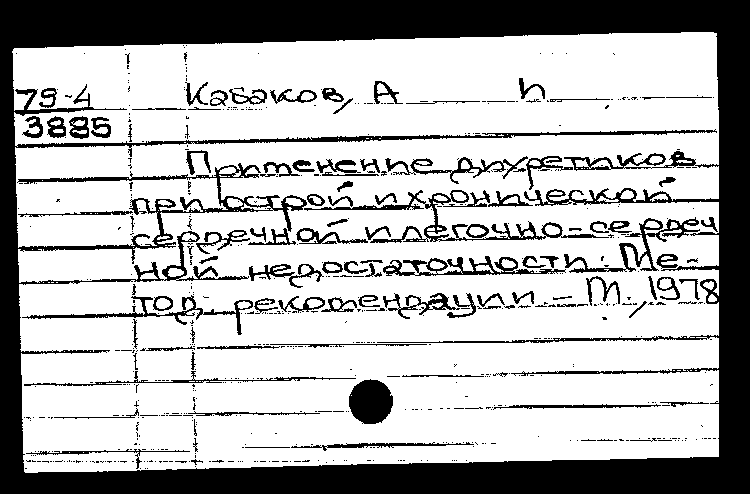 79-4 Кабаков, А п
3885
Применение диуретиков
при острой и хронической
сердечной и легочно-сердеч
ной недостаточности: Ме-
тод. рекомендации. - М., 1978